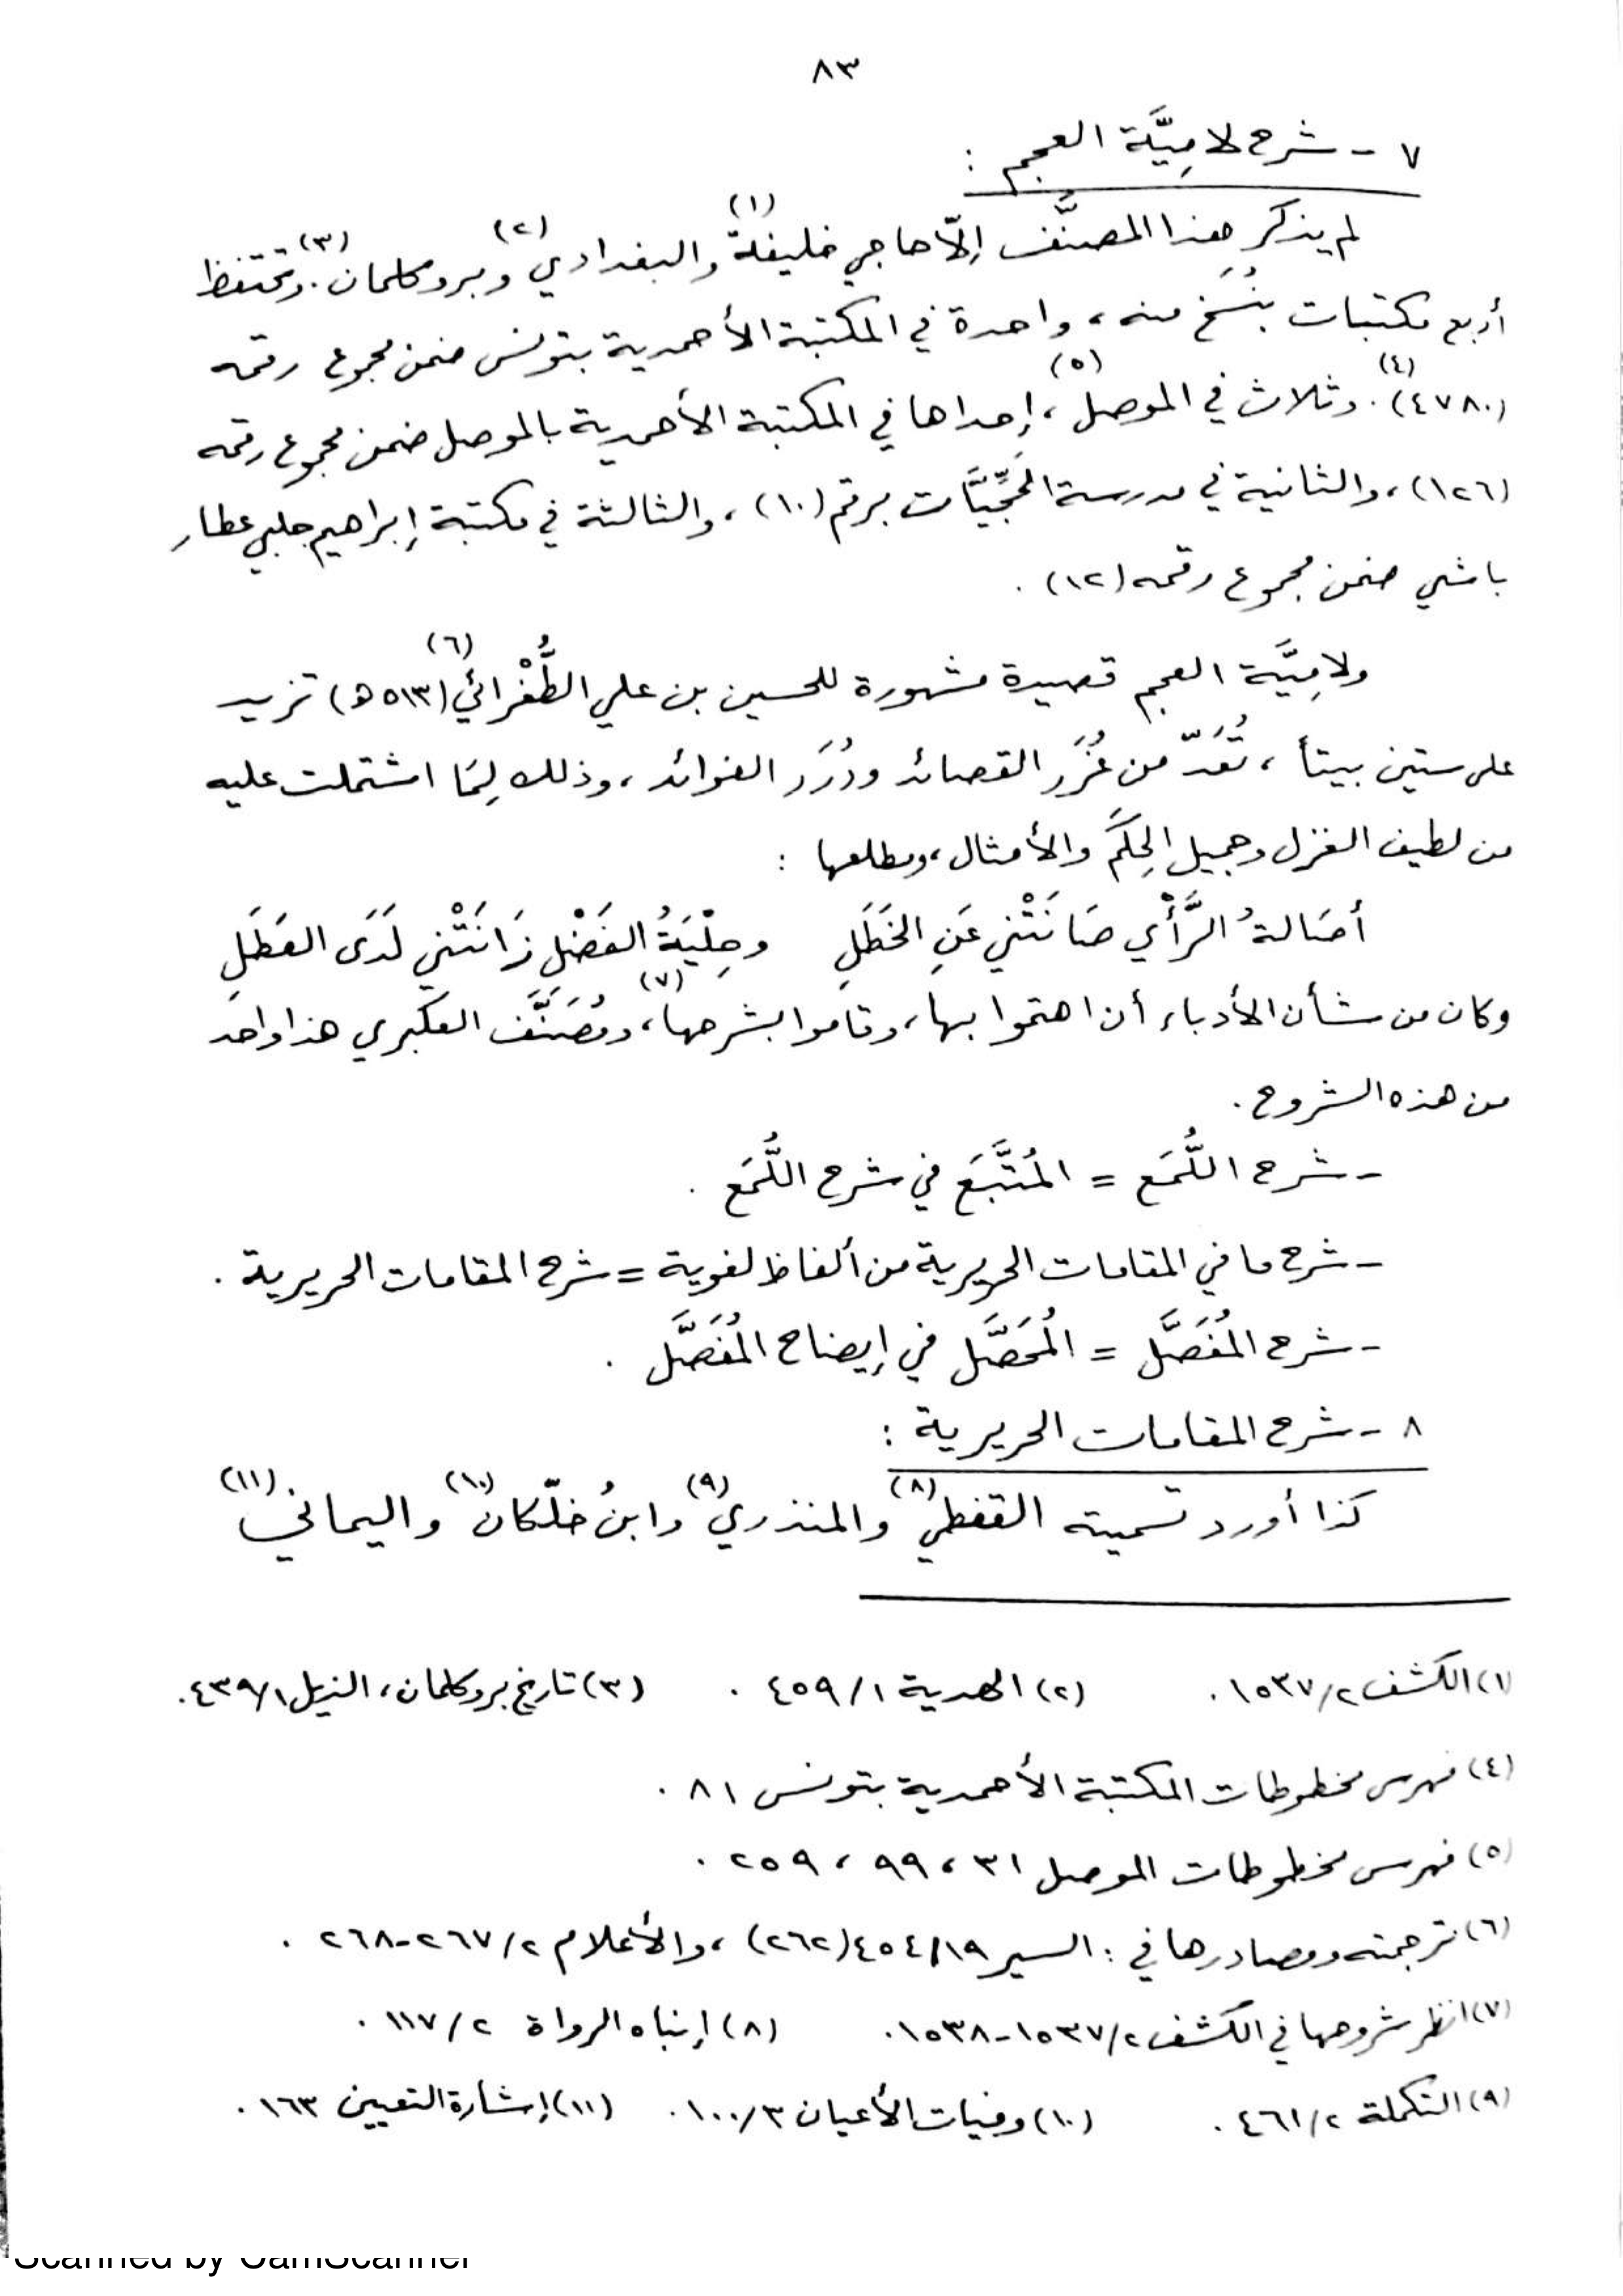 ٨٣
٧ - شرح لامِيَّة العجم :
لم يذكر هذا المصنَّف إلّا حاجي خليفة(١) والبغدادي(٢) وبروكلمان(٣). وتحتفظ
أربع مكتبات بنُسَخ منه، واحدة في المكتبة الأحمدية بتونس ضمن مجموع رقمه
(٤٧٨٠)(٤). وثلاث في الموصل(٥)، إحداها في المكتبة الأحمدية بالموصل ضمن مجموع رقمه
(١٢٦)، والثانية في مدرسة الحَجِّيَّات برقم (١٠)، والثالثة في مكتبة إبراهيم جلبي عطار
باشي ضمن مجموع رقمه (١٢) .
ولامِيَّة العجم قصيدة مشهورة للحسين بن علي الطُّغْرائي(٦) (٥١٣ ه) تزيد
على ستين بيتاً ، تُعَدّ من غُرَر القصائد ودُرَر الفوائد ، وذلك لِمَا اشتملت عليه
من لطيف الغزل وجميل الحِكَم والأمثال، ومطلعها :
أصَالةُ الرَّأْي صَانَتْني عَنِ الخَطَلِ وحِلْيَةُ الفَضْلِ زَانَتْني لَدَى العَطَلِ
وكان من شأن الأدباء أن اهتموا بها، وقاموا بشرحها(٧)، ومُصَنَّف العكبري هذا واحد
من هذه الشروح .
- شرح اللُّمَع = المُتَّبَع في شرح اللُّمَع .
- شرح ما في المقامات الحريرية من ألفاظ لغوية = شرح المقامات الحريرية .
- شرح المُفَصَّل = المُحَصَّل في إيضاح المُفَصَّل .
٨ - شرح المقامات الحريرية :
كذا أورد تسميته القفطي(٨) والمنذري(٩) وابنُ خلّكان(١٠) واليماني(١١)
(١) الكشف ١٥٣٧/٢ . (٢) الهدية ٤٥٩/١ . (٣) تاريخ بروكلمان، الذيل ٤٣٩/١.
(٤) فهرس مخطوطات المكتبة الأحمدية بتونس ٨١ .
(٥) فهرس مخطوطات الموصل ٣١ ، ٩٩ ، ٢٥٩ .
(٦) ترجمته ومصادرها في : السير ٤٥٤/١٩ (٢٦٢) ، والأعلام ٢٦٧/٢-٢٦٨ .
(٧) انظر شروحها في الكشف ١٥٣٧/٢-١٥٣٨ . (٨) إنباه الرواة ١١٧/٢ .
(٩) التكملة ٤٦١/٢ . (١٠) وفيات الأعيان ١٠٠/٣ . (١١) إشارة التعيين ١٦٣ .
Scanned by CamScanner